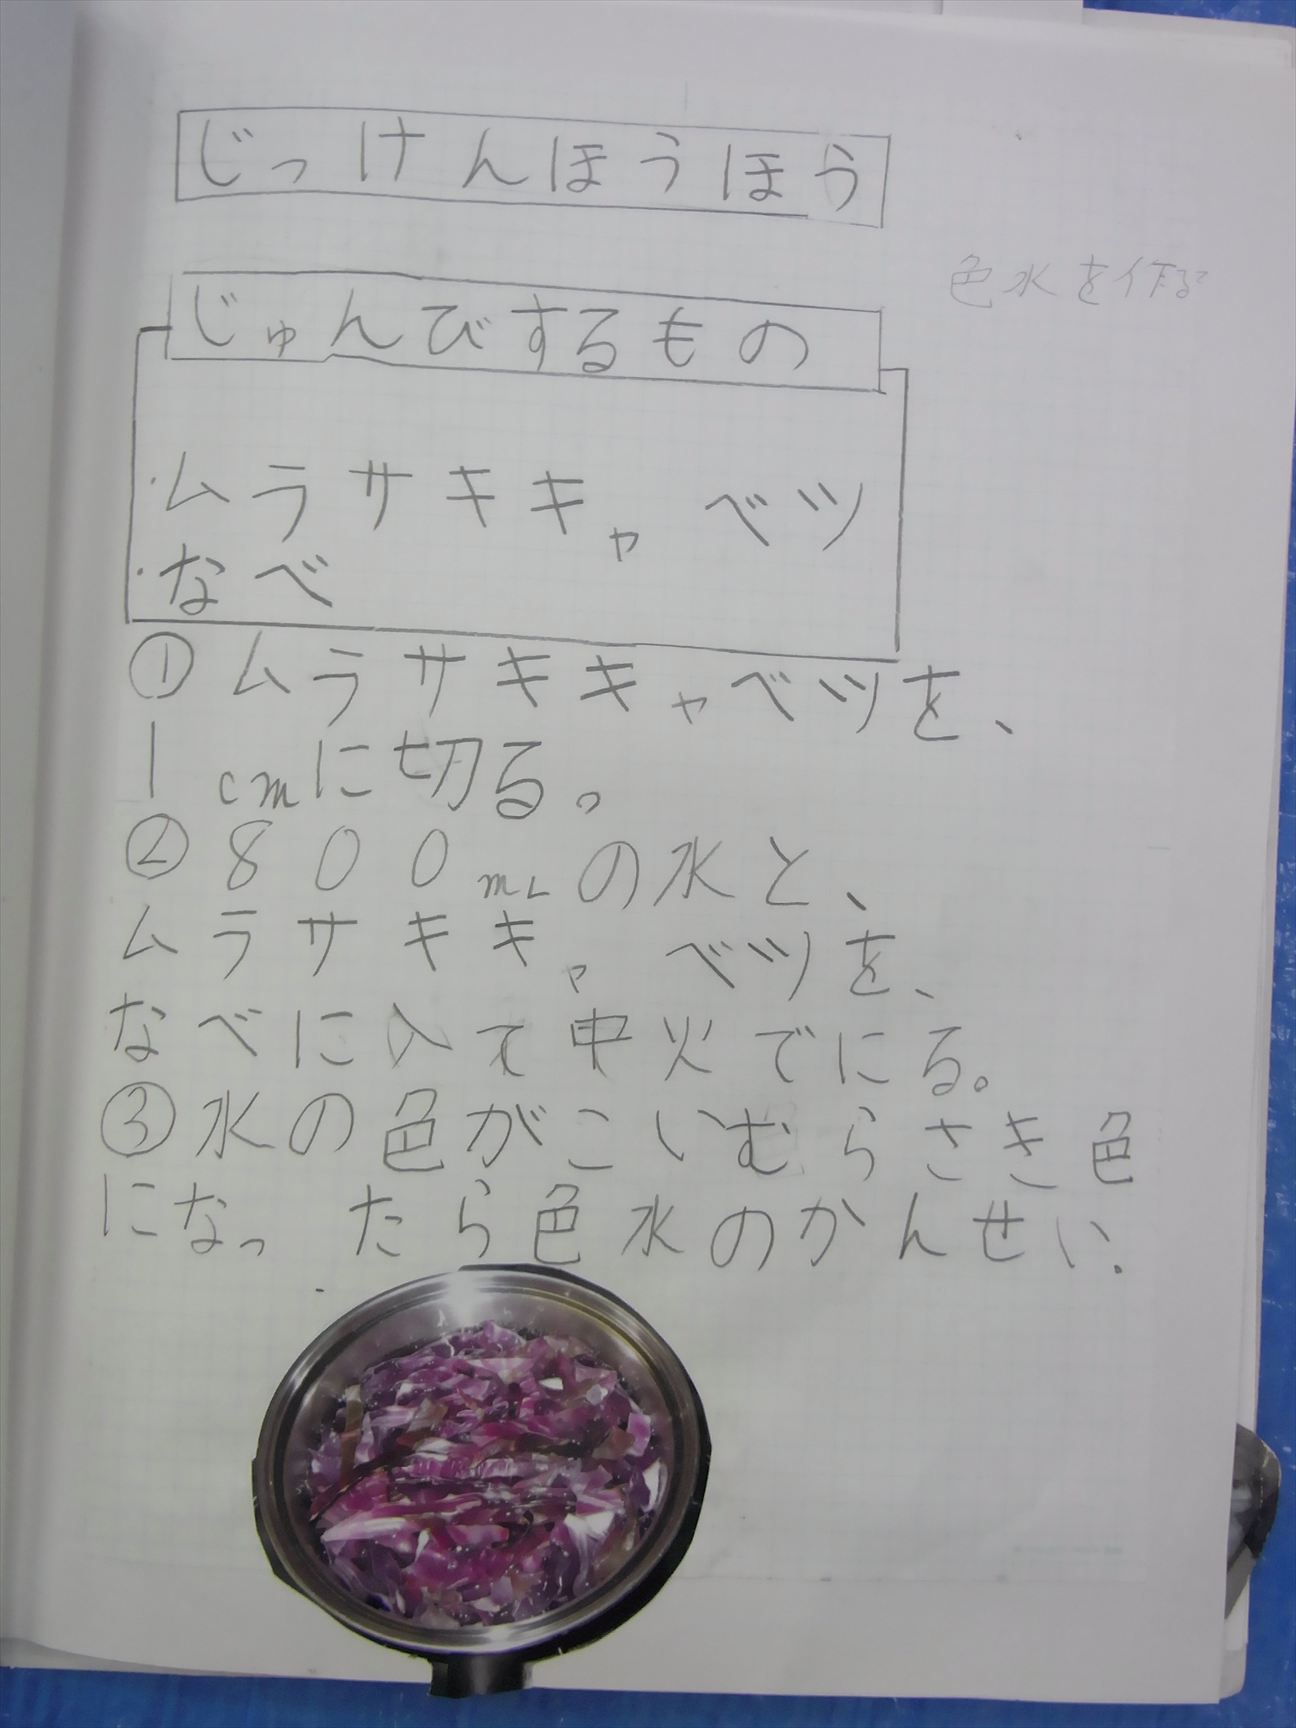 じっけんほうほう
色水を作る
じゅんびするもの
・ムラサキキャベツ
・なべ
①ムラサキキャベツを、
1cmに切る。
②800mLの水と、
ムラサキキャベツを、
なべに入て中火でにる。
③水の色がこいむらさき色
になったら色水のかんせい.